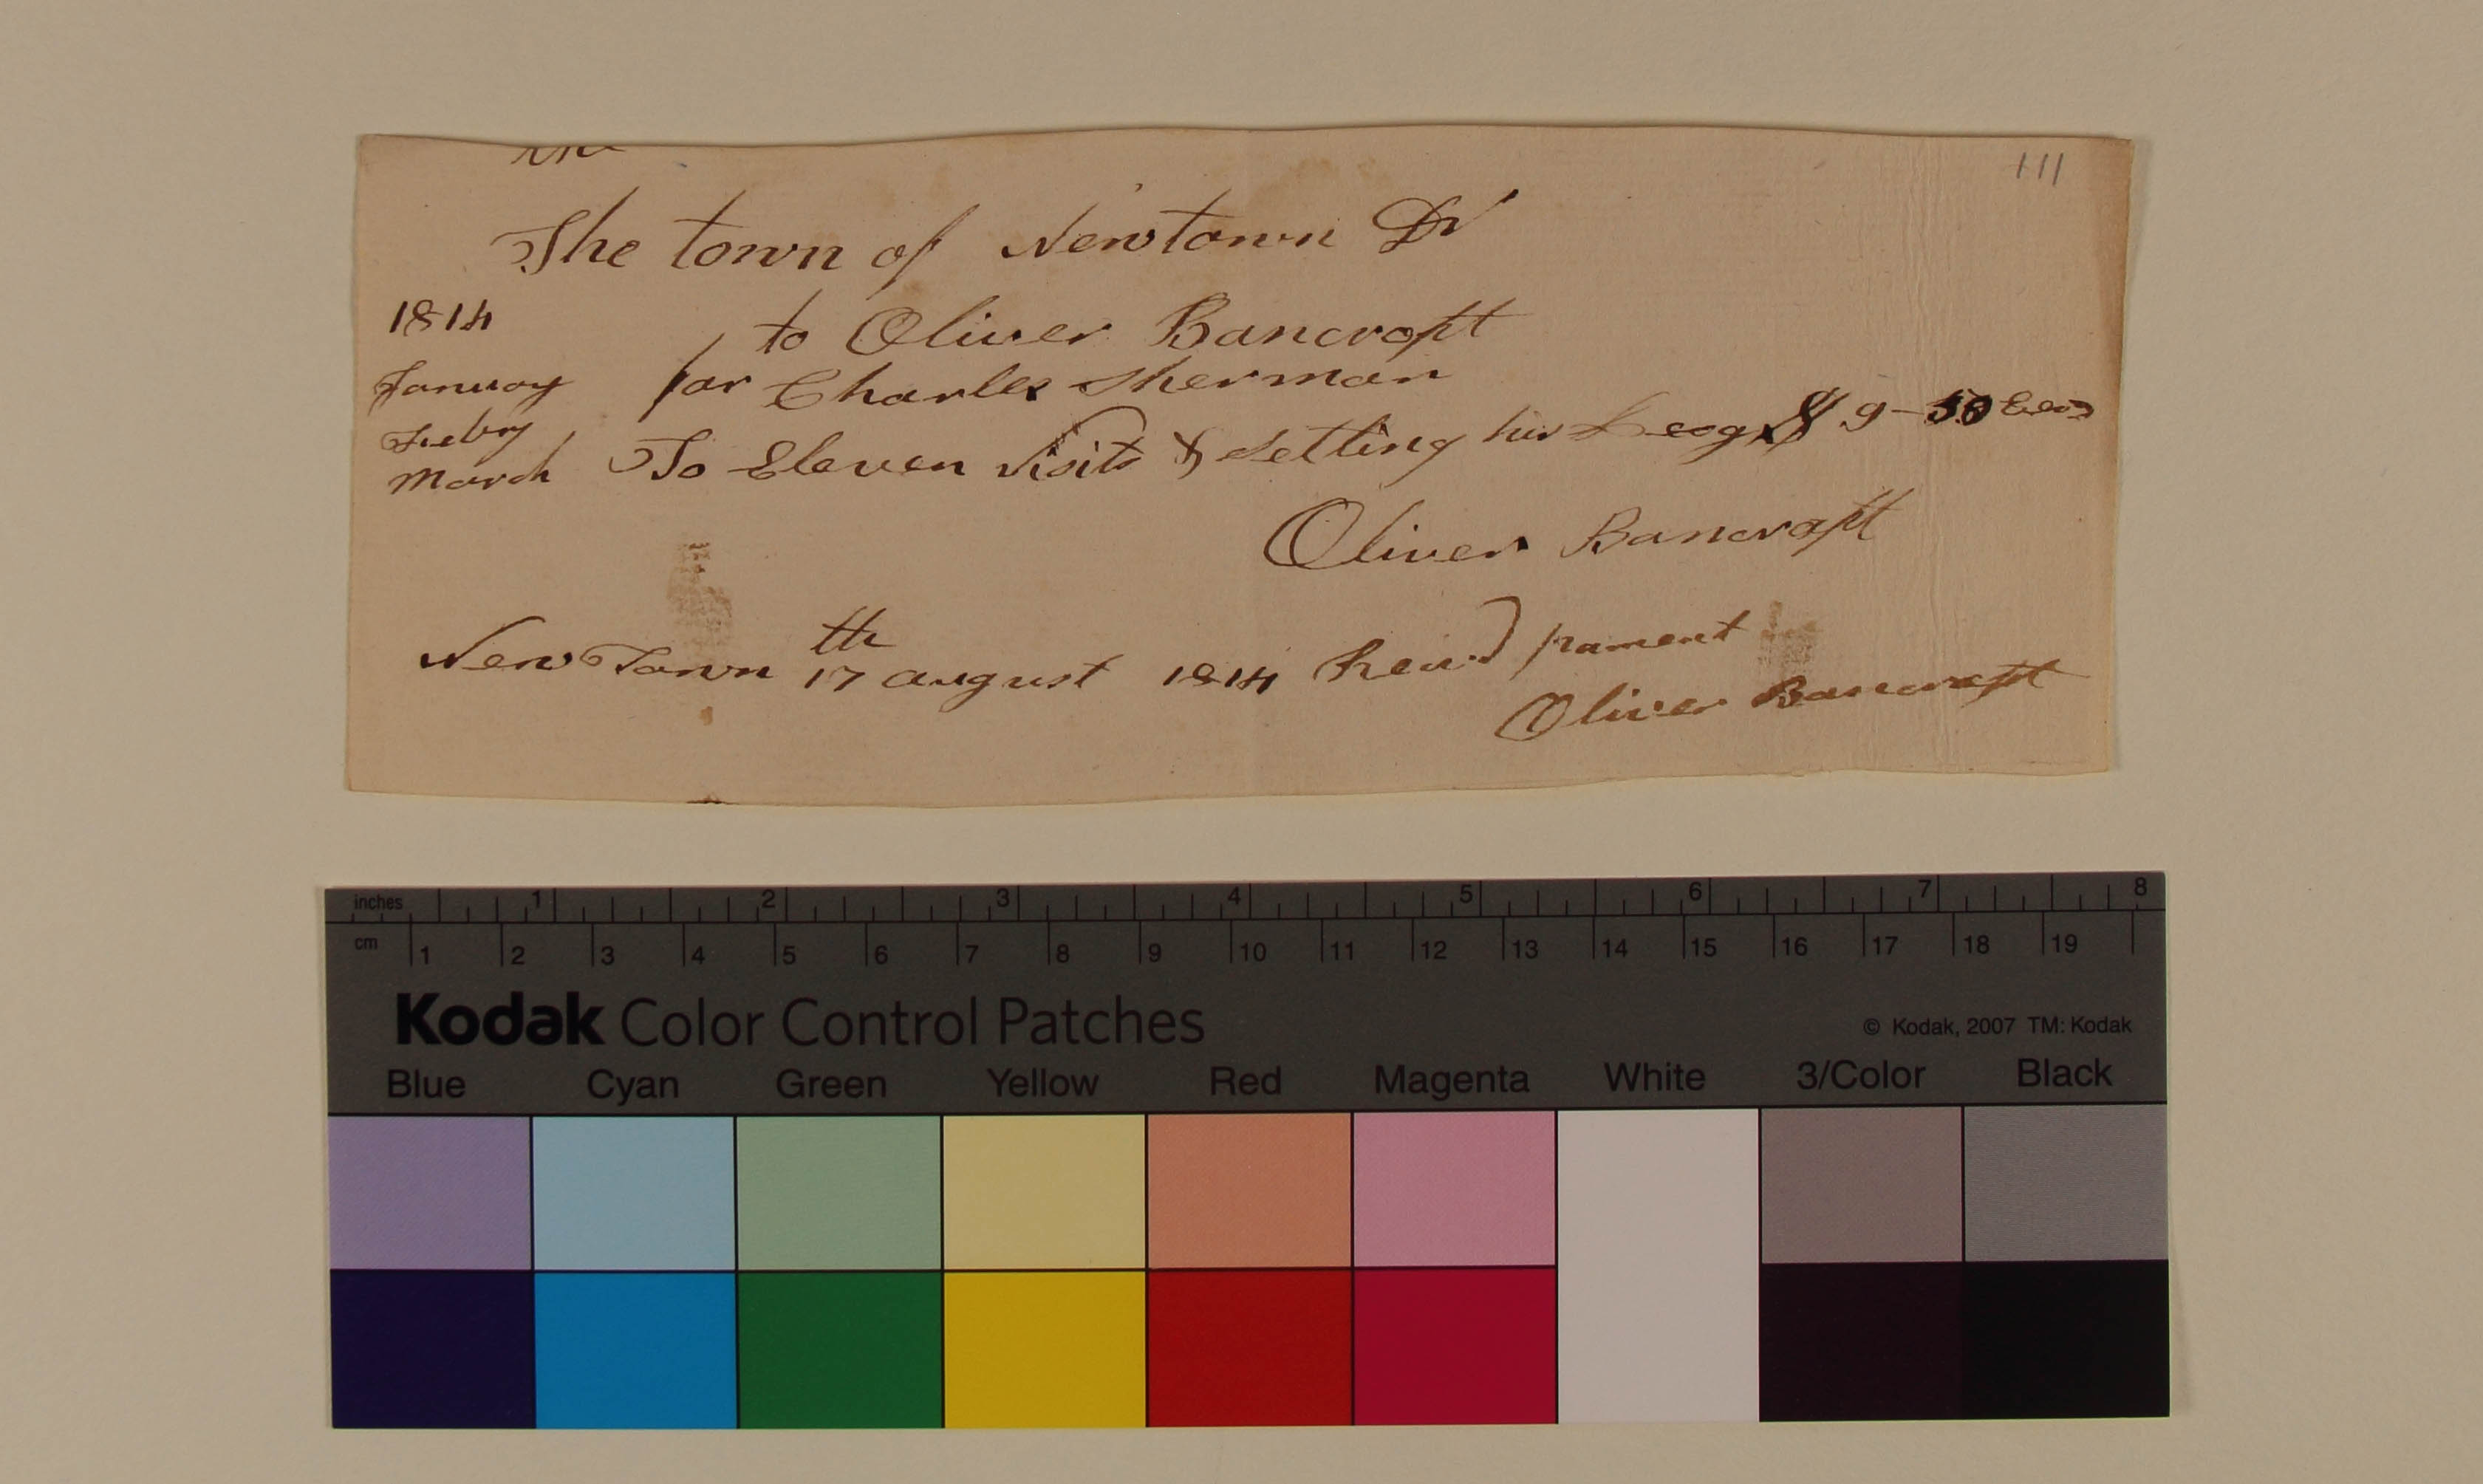 the
111
The town of Newtown Dr
1814 to Oliver Bancroft
January for Charles Sherman
Febry
March To Eleven Visits & Setting his Leog $ 9-50 Cens
Oliver Bancroft
New Town 17th august 1814 Recivd pament
Oliver Bancroft
inches 1 2 3 4 5 6 7 8
cm 1 2 3 4 5 6 7 8 9 10 11 12 13 14 15 16 17 18 19
Kodak Color Control Patches © Kodak, 2007 TM: Kodak
Blue Cyan Green Yellow Red Magenta White 3/Color Black